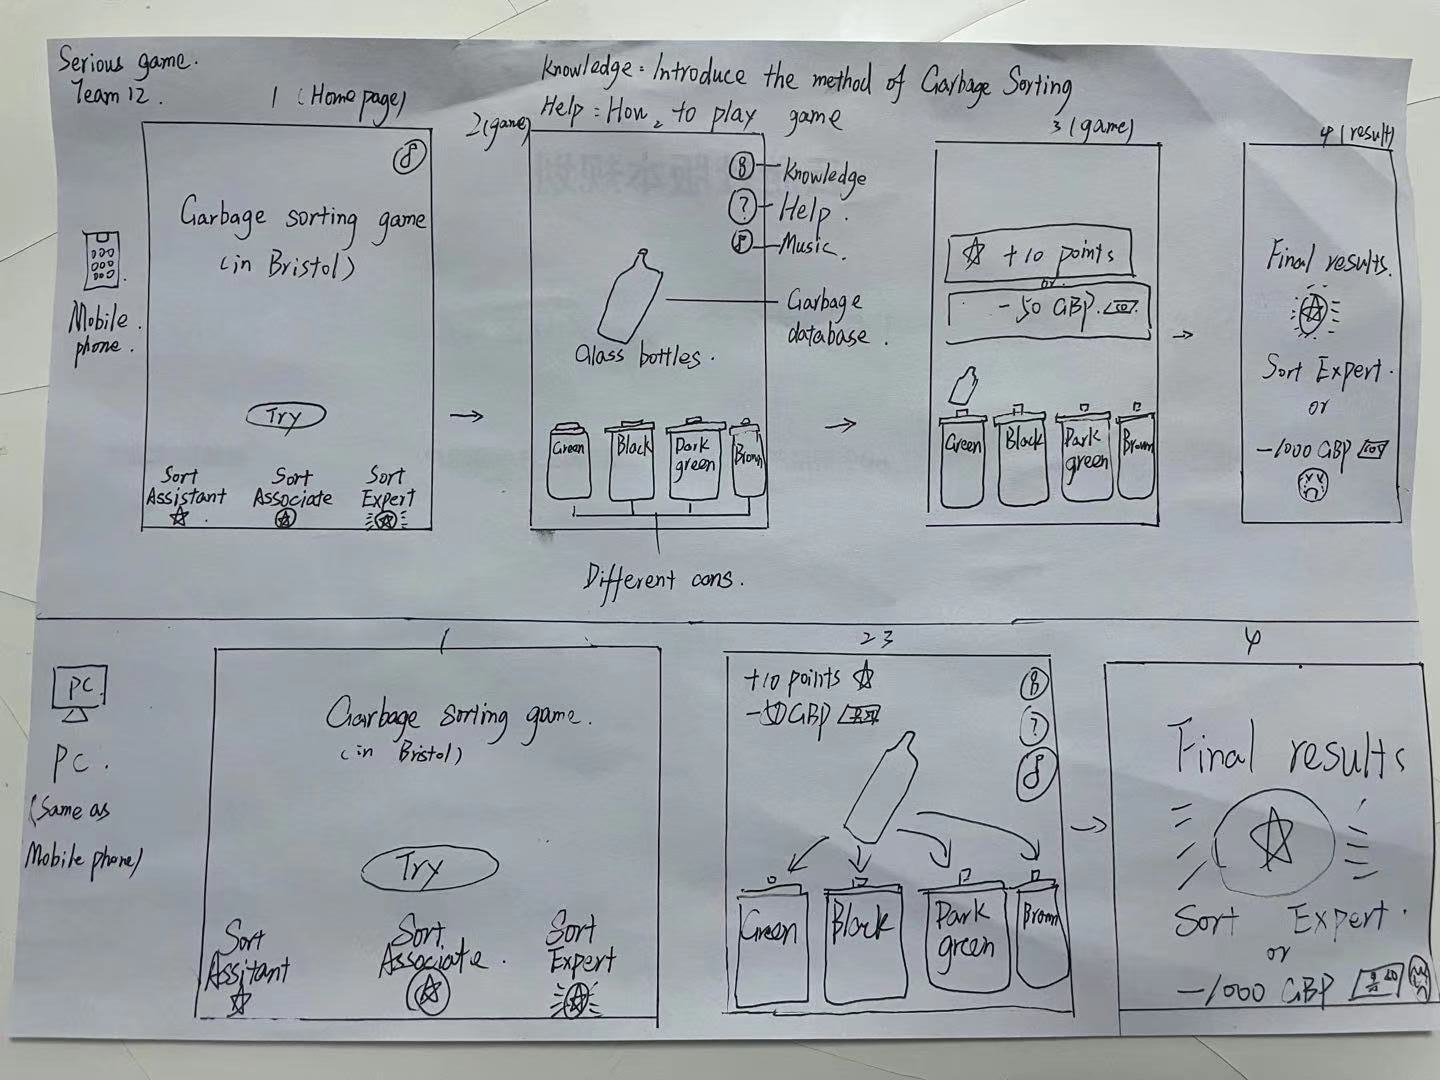 Serious game.
Team 12.
Knowledge: Introduce the method of Garbage Sorting
Help: How to play game
1 (Home page)
2 (game)
3 (game)
4 (result)
Mobile phone.
Garbage sorting game
(in Bristol)
Try
Sort Assistant
Sort Associate
Sort Expert
8
Knowledge
?
Help.
Music.
Glass bottles.
Garbage database.
Green
Black
Dark green
Brown
Different cans.
+10 points
or
-50 GBP.
Green
Black
Dark green
Brown
Final results.
Sort Expert.
or
-1000 GBP
PC
PC.
(Same as Mobile phone)
1
Garbage sorting game.
(in Bristol)
Try
Sort Assitant
Sort Associate.
Sort Expert
2 3
+10 points
-50 GBP
8
?
Green
Black
Dark green
Brown
4
Final results
Sort Expert.
or
-1000 GBP